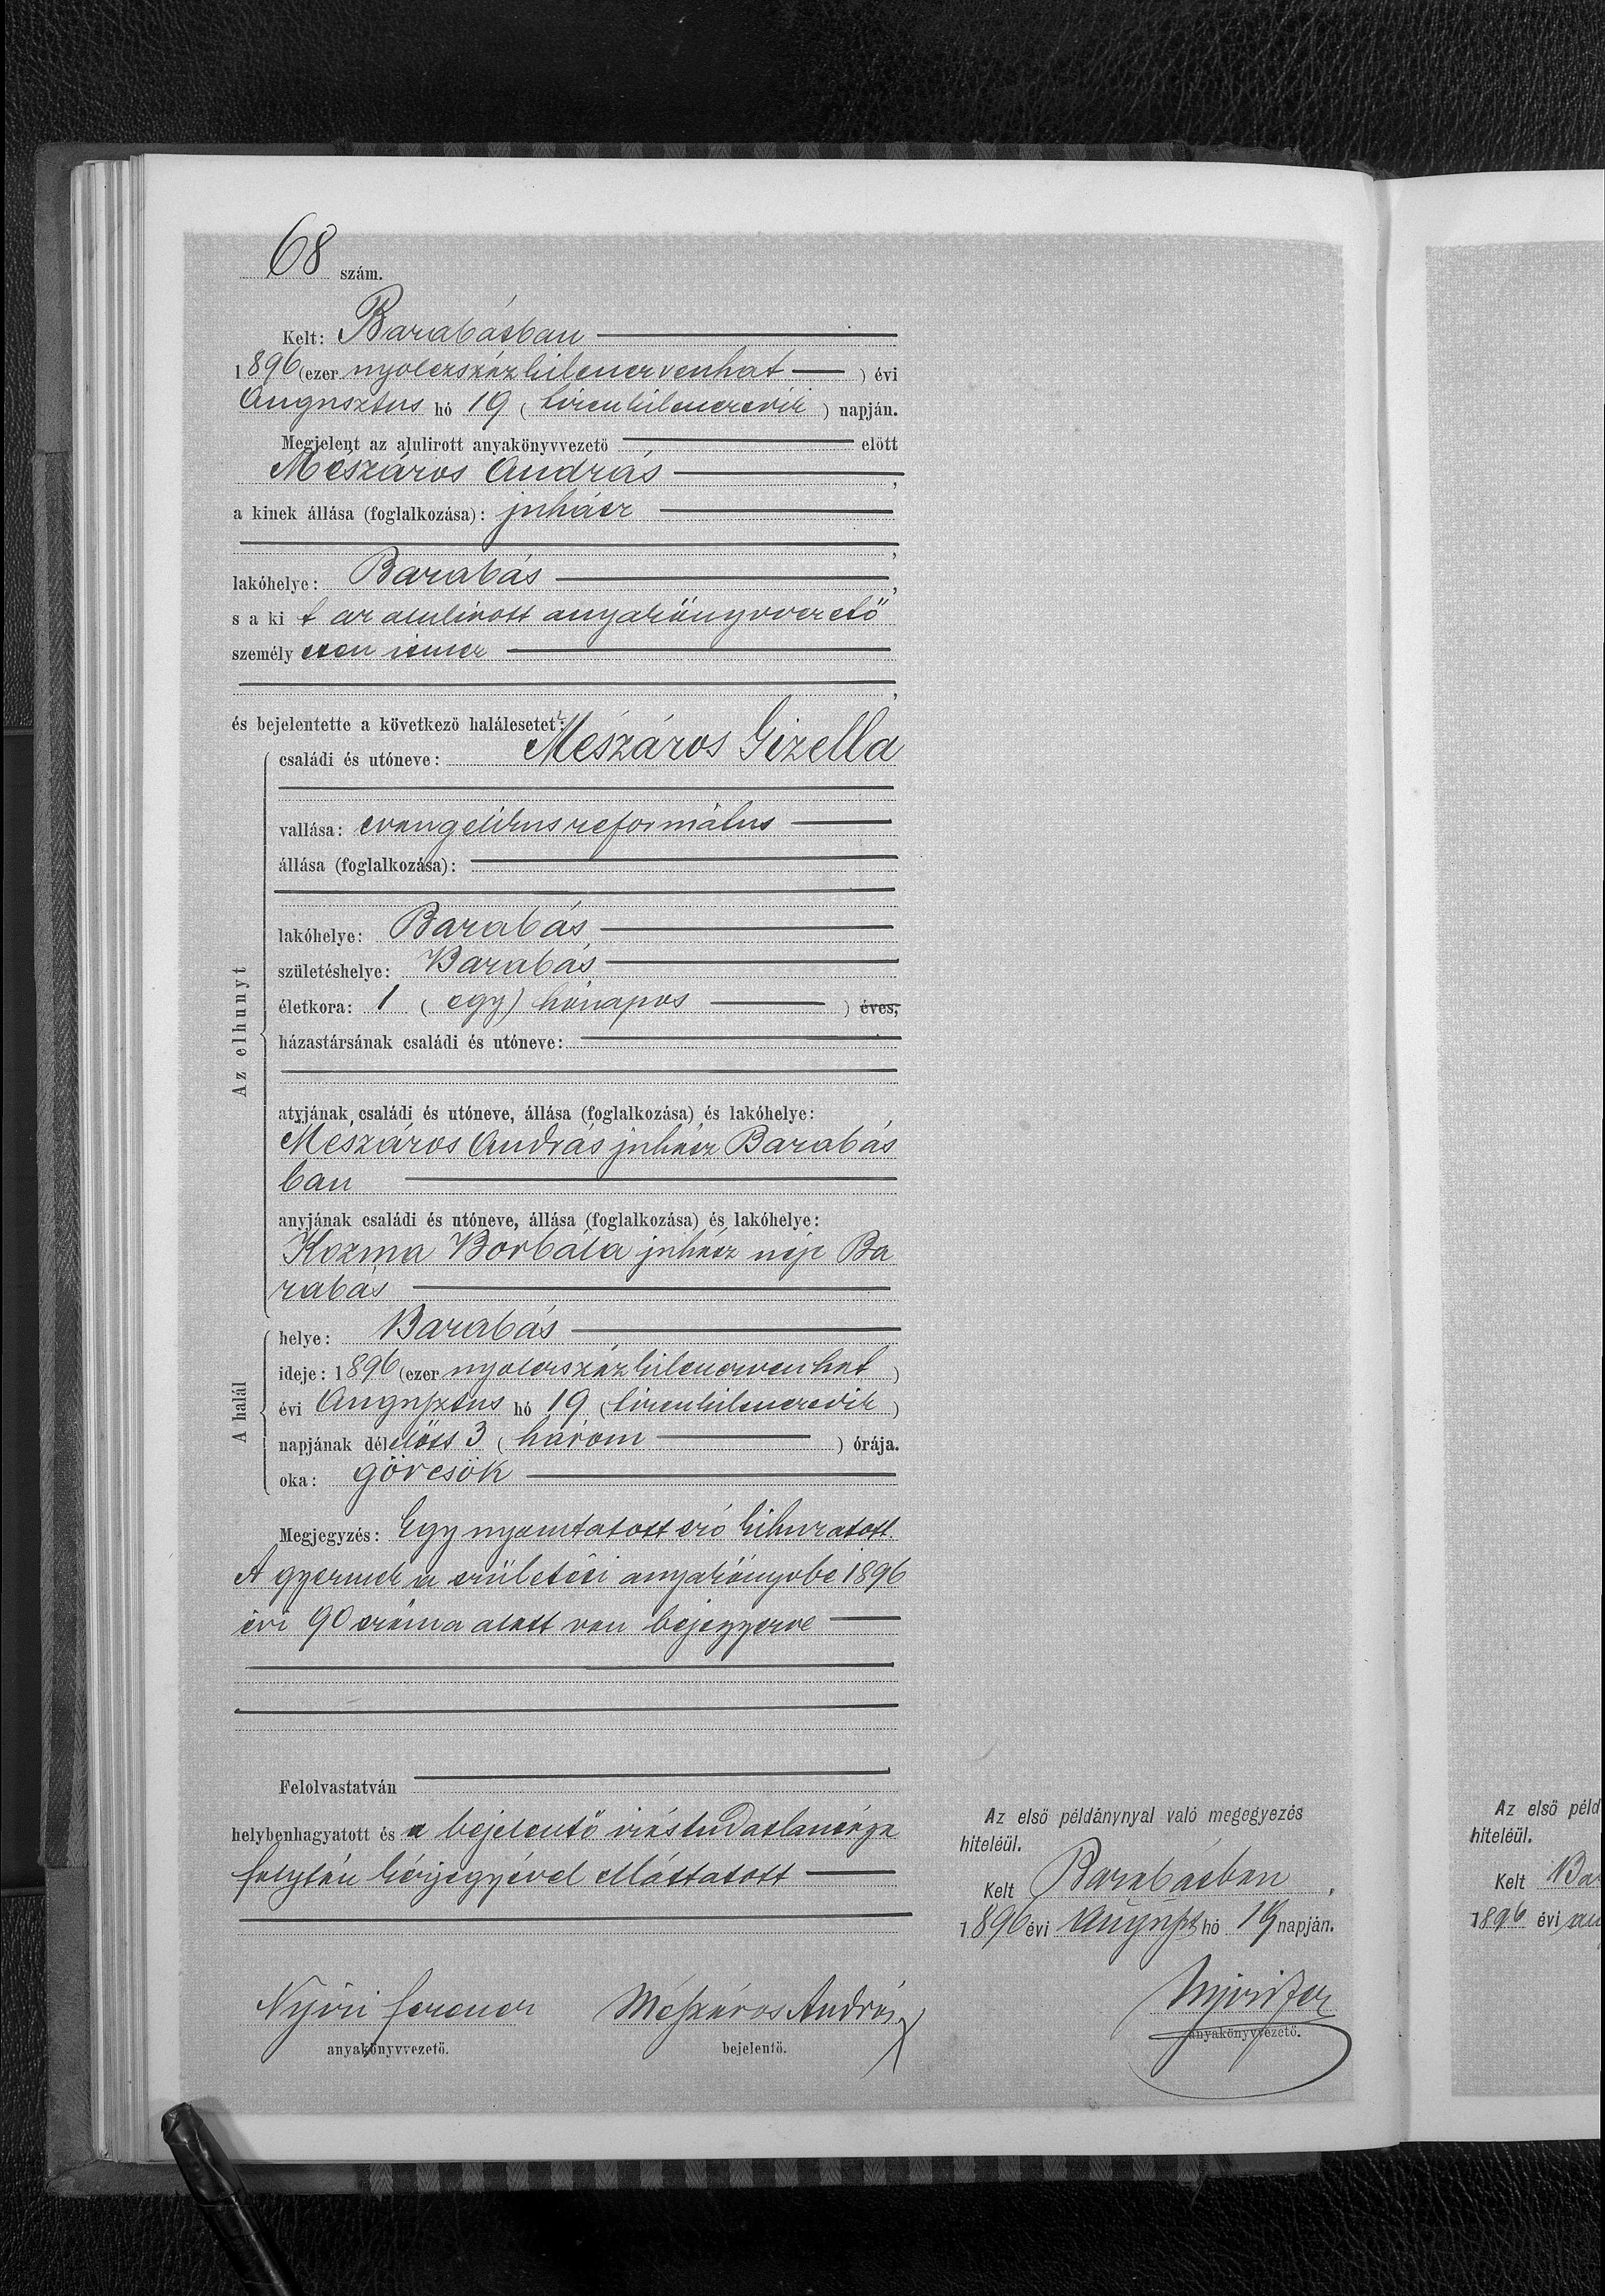 68 szám.
Kelt: Barabásban
1896 (ezer nyolczszázkilenczvenhat) évi
Augusztus hó 19 (tizenkilenczedik) napján.
Megjelent az alulirott anyakönyvvezető előtt
Mészáros András,
a kinek állása (foglalkozása): juhász
,
lakóhelye: Barabás,
s a kit az alulirott anyakönyvvezető
személyesen ismer
,
és bejelentette a következő halálesetet:
Az elhunyt
családi és utóneve: Mészáros Gizella
vallása: evangelikus református
állása (foglalkozása):
lakóhelye: Barabás
születéshelye: Barabás
életkora: 1 (egy) hónapos ) éves;
házastársának családi és utóneve:
atyjának családi és utóneve, állása (foglalkozása) és lakóhelye:
Mészáros András juhász Barabás
ban
anyjának családi és utóneve, állása (foglalkozása) és lakóhelye:
Kozma Borbála juhász neje Ba
rabás
A halál
helye: Barabás
ideje: 1896 (ezer nyolczszázkilenczvenhat)
évi Augusztus hó 19 (tizenkilenczedik)
napjának délelőtt 3 (három) órája.
oka: görcsök
Megjegyzés: Egy nyomtatott szó kihuzatott.
A gyermek a születési anyakönyvbe 1896
évi 90 száma alatt van bejegyezve
Felolvastatván
helybenhagyatott és a bejelentő irástudatlansága
folytán kézjegyével elláttatott
Nyiri Ferencz
anyakönyvvezető.
Mészáros András X
bejelentő.
Az első példánynyal való megegyezés
hiteléül.
Kelt Barabásban,
1896 évi Auguszt hó 19 napján.
Nyiri Fer
anyakönyvvezető.
Az első péld
hiteléül.
Kelt Ba
1896 évi au